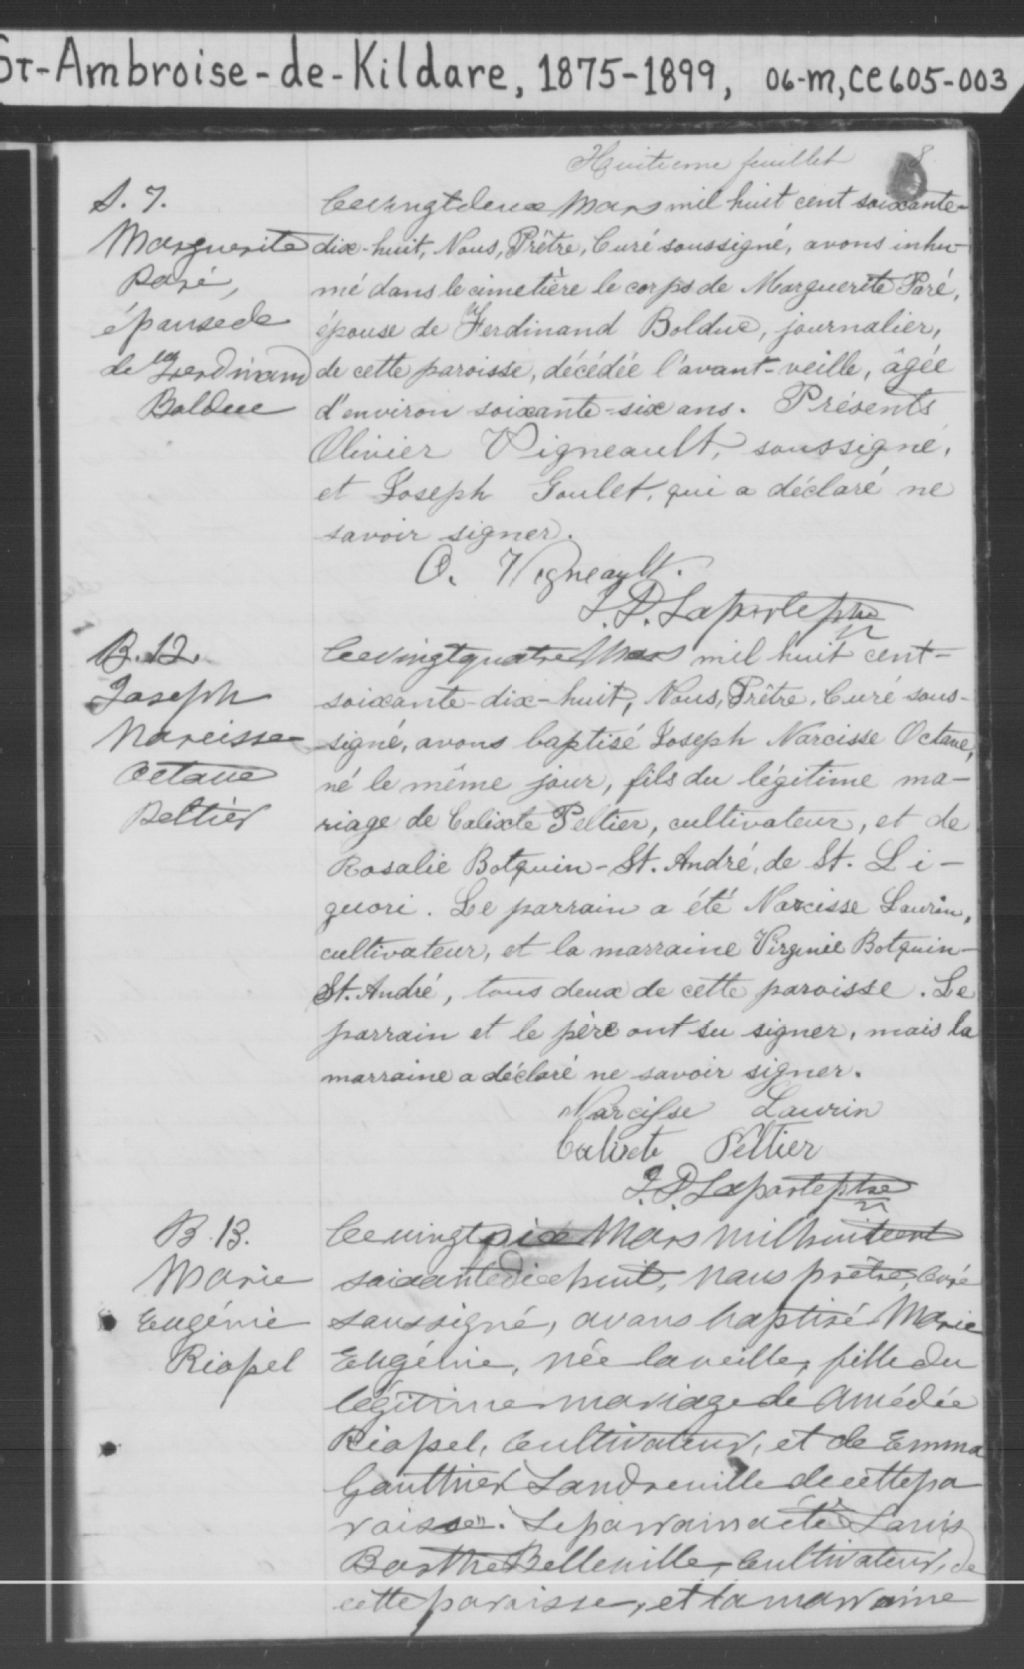 St-Ambroise-de-Kildare, 1875-1899, 06-M, CE605-003
Huitieme feuillet 8
S. 7.
Marguerite
Paré,
épouse de
de Ferdinand
Bolduc
Ce vingt deux Mars mil huit cent soixante-
dix-huit, Nous, Prêtre, Curé soussigné, avons inhu-
mé dans le cimetière le corps de Marguerite Paré,
épouse de Ferdinand Bolduc, journalier,
de cette paroisse, décédée l'avant-veille, âgée
d'environ soixante-six ans. Présents
Olivier Vigneault, soussigné,
et Joseph Goulet, qui a déclaré ne
savoir signer.
O. Vigneault.
J. D. Laporte ptre
B. 12.
Joseph
Narcisse
Octave
Peltier
Ce vingt quatre Mars mil huit cent-
soixante-dix-huit, Nous, Prêtre, Curé sous-
signé, avons baptisé Joseph Narcisse Octave,
né le même jour, fils du légitime ma-
riage de Calixte Peltier, cultivateur, et de
Rosalie Botquin-St. André, de St. Li-
guori. Le parrain a été Narcisse Laurin,
cultivateur, et la marraine Virginie Botquin-
St. André, tous deux de cette paroisse. Le
parrain et le père ont su signer, mais la
marraine a déclaré ne savoir signer.
Narcisse Laurin
Calixte Peltier
J. D. Laporte ptre
B. 13.
Marie
Eugénie
Riopel
Ce vingt six Mars mil huit cent
soixante dix huit, nous prêtre, Curé
soussigné, avons baptisé Marie
Eugénie, née la veille, fille du
légitime mariage de Amédée
Riopel, Cultivateur, et de Emma
Gauthier Landreville de cette pa
roisse. Le parrain a été Louis
Barthe Belleville, Cultivateur, de
cette paroisse, et la marraine